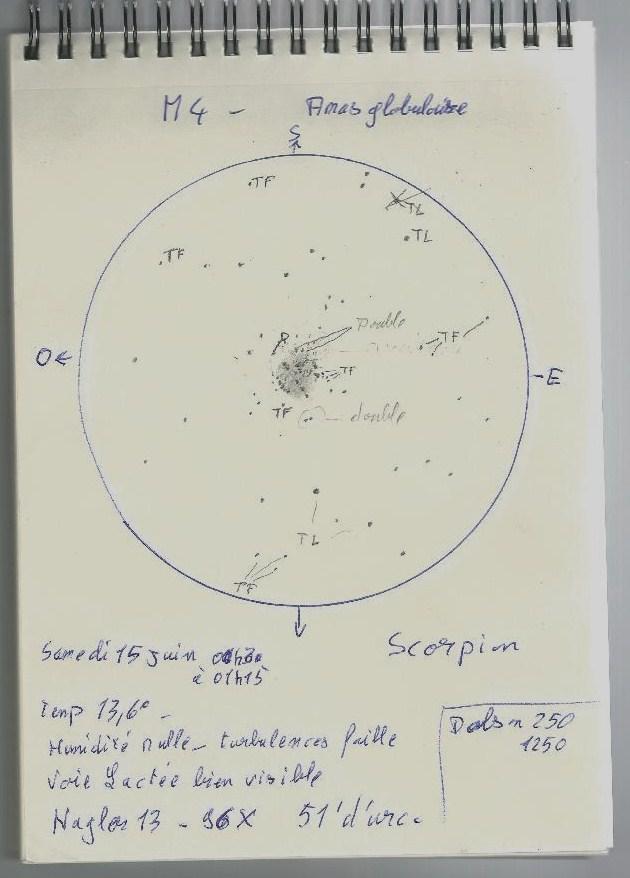 M4 - Amas globulaire
S
TF
TL
TL
TF
Double
TF
O
E
TF
TF
double
TL
TF
Samedi 15 juin
à 01h15
Scorpion
Temp 13,6° -
Humidité nulle - turbulences faille
Voie Lactée bien visible
Dobson 250
1250
Nagler 13 - 96X 51'd'arc.